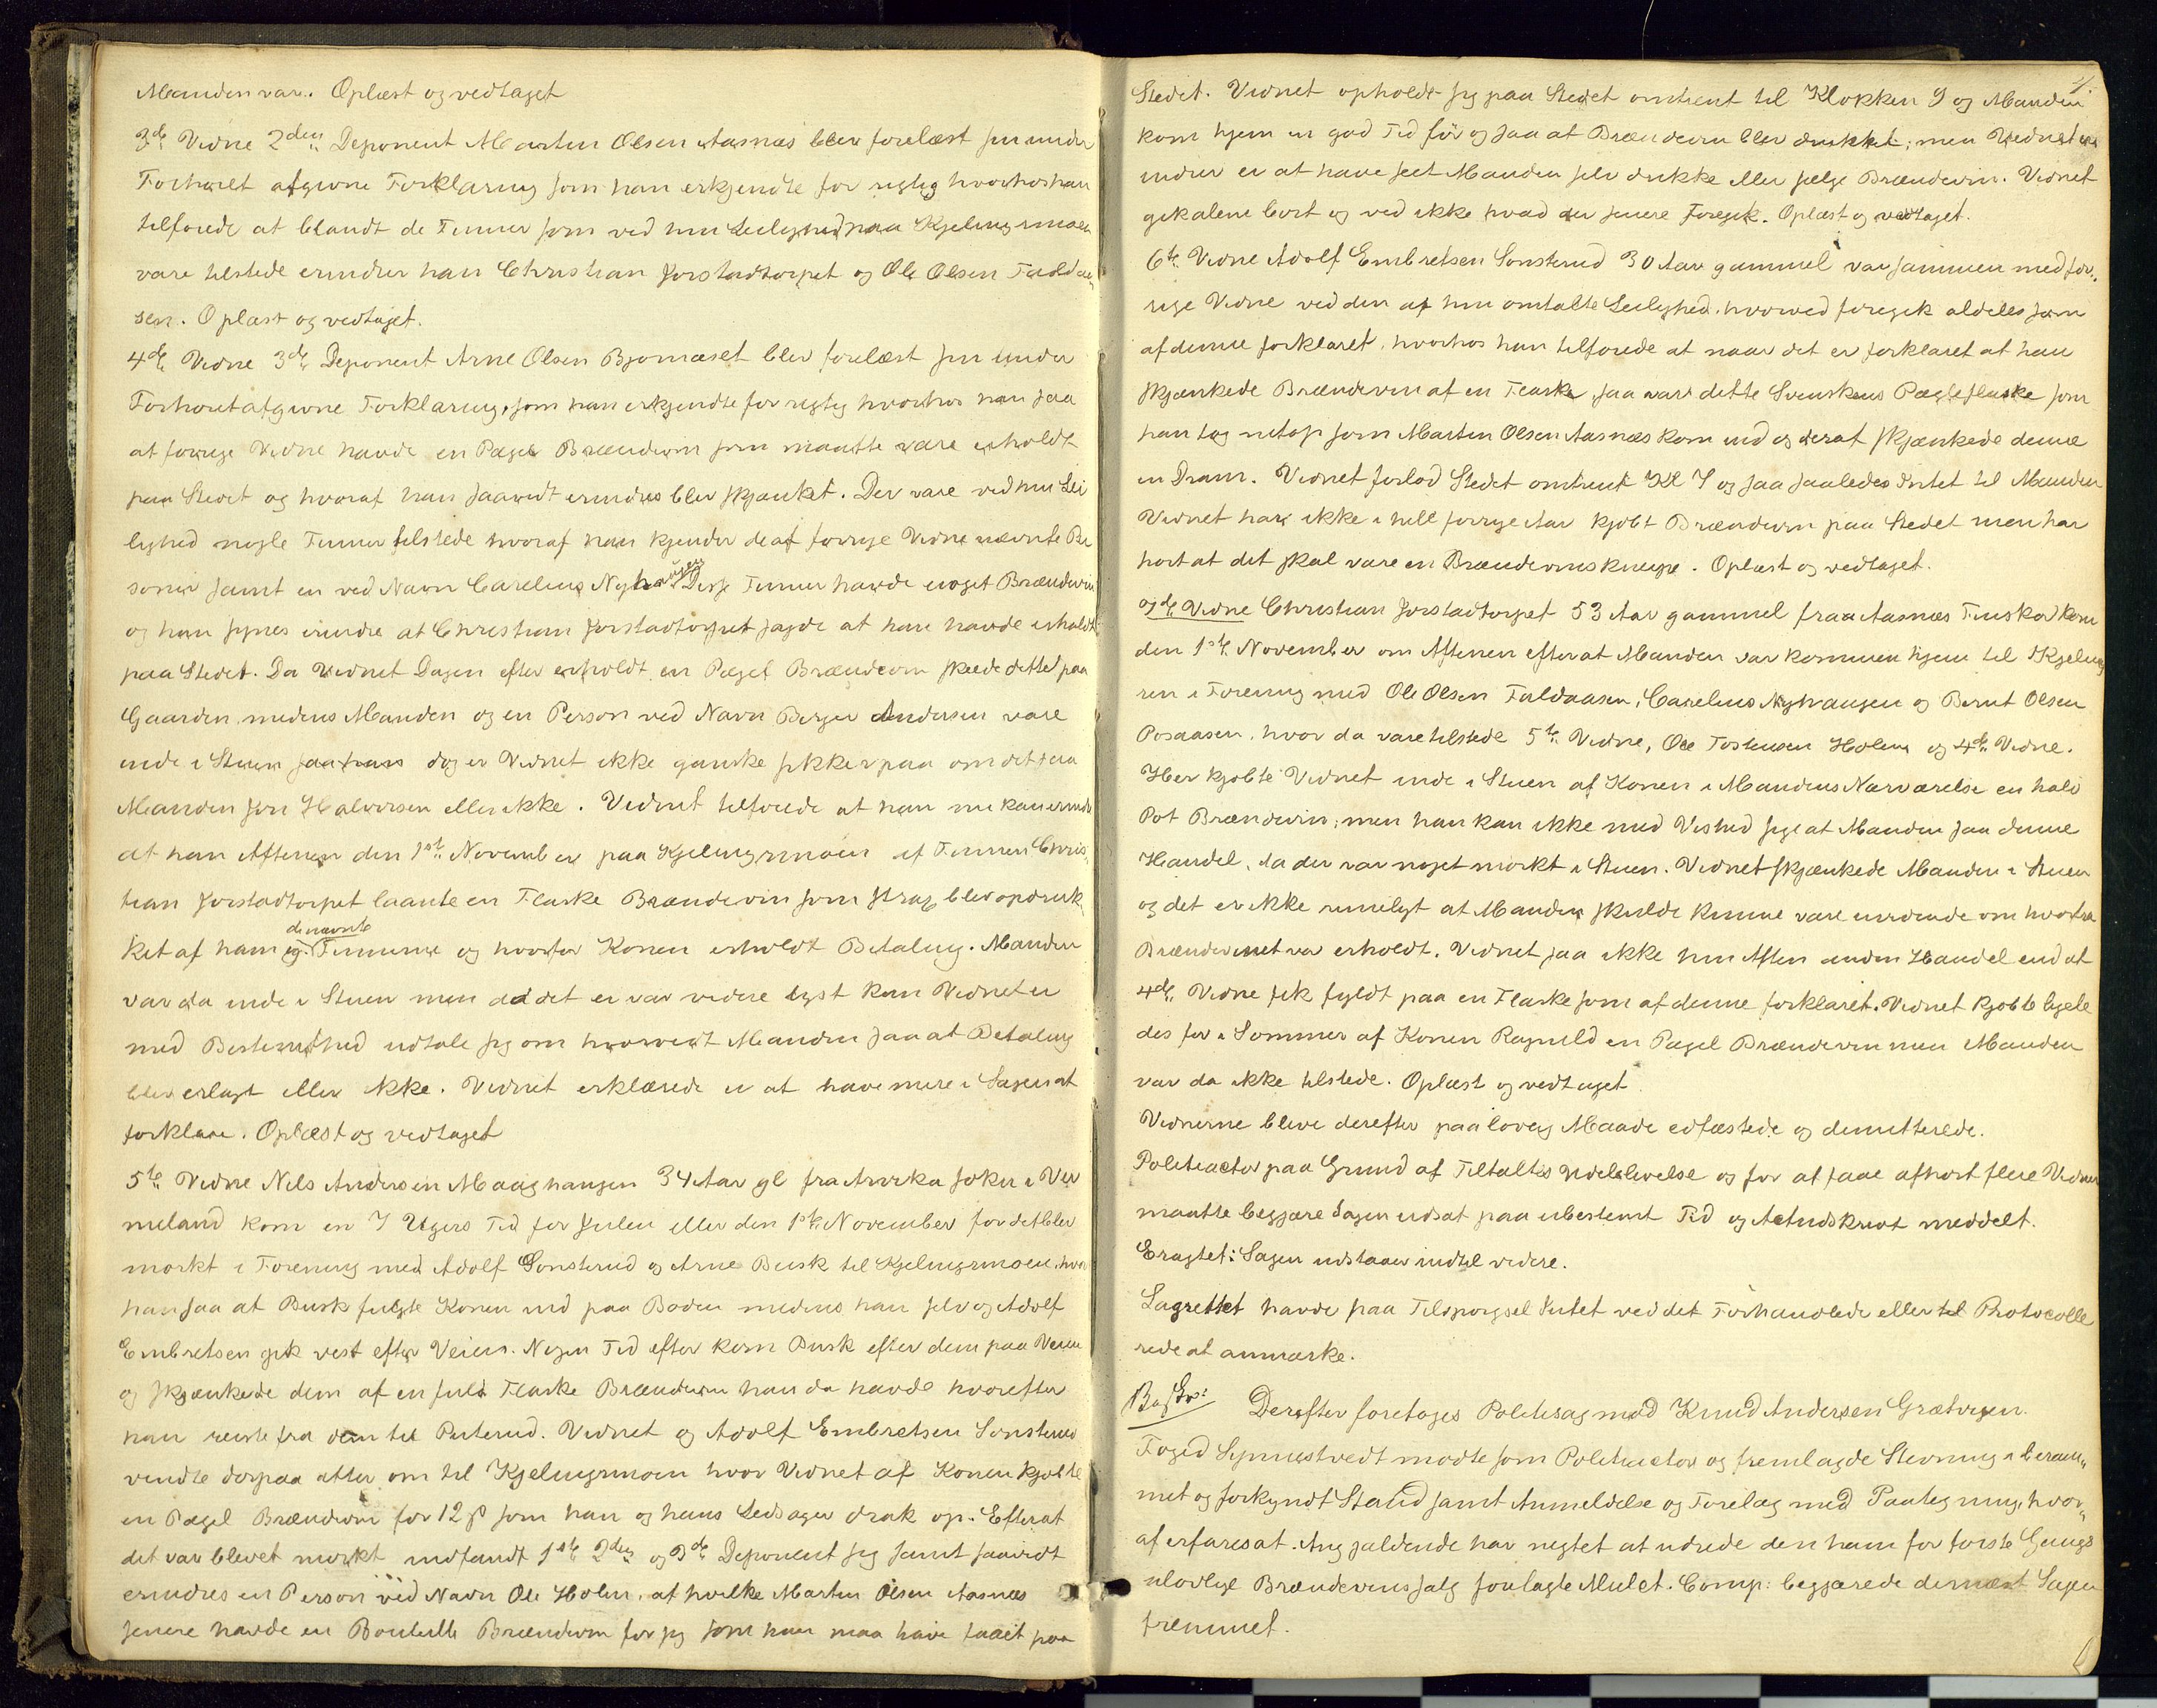 Manden var. Oplæst og vedtaget
3de Vidne 2den Deponent Martin Olsen Aasnæs blev forelæst sin under
Forhøret afgivne Forklaring som han erkjendte for rigtig hvorhos han
tilføiede at blandt de Finner som ved hin Leilighed paa Kjelingsmoen
vare tilstede erindrer han Christian Jorstadtorpet og Ole Olsen Faldaa
sen. Oplæst og vedtaget.
4de Vidne 3die Deponent Arne Olsen Bjørnæset blev forelæst sin under
Forhøret afgivne Forklaring, som han erkjendte for rigtig hvorhos han saa
at forrige Vidne havde en Pægel Brændevin som maatte være erholdt
paa Stedet og hvoraf han saavidt erindres blev skjænket. Der vare ved hin Lei
lighed nogle Finner tilstede hvoraf han kjender de af forrige Vidne nævnte Per
soner samt en ved Navn Carelius Nyhaugen Disse Finner havde noget Brændevin
og han synes erindre at Christian Jorstadtorpet sagde at han havde erholdt
paa Stedet. Da Vidnet Dagen efter erholdt en Pægel Brændevin skede dette paa
Gaarden, medens Manden og en Person ved Navn Birger Andersen vare
inde i Stuen dog er Vidnet ikke ganske sikker paa om det saa
Manden Jon Halvorsen eller ikke. Vidnet tilføiede at han nu kan erindre
at han Aftenen den 1ste November paa Kjelingsmoen af Finnen Chris
tian Jorstadtorpet laante en Flaske Brændevin som strax blev opdruk
ket af ham og de nævnte Finnerne og hvorfor Konen erholdt Betaling. Manden
var da inde i Stuen men da det ei var videre lyst kan Vidnet ei
med Bestemthed udtale sig om hvorvidt Manden saa at Betaling
blev erlagt eller ikke. Vidnet erklærede ei at have mere i Sagen at
forklare. Oplæst og vedtaget
5te Vidne Nils Andersen Maaghaugen 34 Aar gl fra Arvika Sokn i Ver
meland kom en 7 Ugers Tid før Julen eller den 1ste November før det blev
mørkt i Forening med Adolf Sonsterud og Arne Busk til Kjelingsmoen, hvor
han saa at Busk fulgte Konen ind paa Boden medens han selv og Adolf
Embretsen gik vest efter Veien. Nogen Tid efter kom Busk efter dem paa Veien
og skjænkede dem af en fuld Flaske Brændevin han da havde hvorefter
han reiste fra dem til Puterud. Vidnet og Adolf Embretsen Sonsterud
vendte derpaa atter om til Kjelingsmoen hvor Vidnet af Konen kjøbte
en Pægel Brændevin for 12 ß som han og hans Ledsager drak op. Efterat
det var blevet mørkt indfandt 1ste 2den og 3de Deponent sig samt saavidt
erindres en Person ved Navn Ole Holen, af hvilke Martin Olsen Aasnæs
senere havde en Bouteille Brændevin for sig som han maa have faaet paa
4.
Stedet. Vidnet opholdt sig paa Stedet omtrent til Klokken 9 og Manden
kom hjem en god Tid før og saa at Brændevin blev drukket; men Vidnet er
indrer ei at have seet Manden selv drikke eller sælge Brændevin. Vidnet
gik alene bort og ved ikke hvad der senere foregik. Oplæst og vedtaget.
6te Vidne Adolf Embretsen Sonsterud 30 Aar gammel var sammen med for
rige Vidne ved den af hin omtalte Leilighed, hvorved foregik aldeles som
af denne forklaret, hvorhos han tilføiede at naar det er forklaret at han
skjænkede Brændevin af en Flaske, saa var dette Svenskens Pægleflaske som
han tog netop som Martin Olsen Aasnæs kom ind og deraf skjænkede denne
en Dram. Vidnet forlod Stedet omtrent Kl 7 og saa saaledes Intet til Manden
Vidnet har ikke i hele forrige Aar kjøbt Brændevin paa Stedet men har
hørt at det skal være en Brændevinskneipe. Oplæst og vedtaget.
7de Vidne Christian Jorstadtorpet 53 Aar gammel fraa Aasnæs Finskov kom
den 1ste November om Aftenen efterat Manden var kommen hjem til Kjelings
en i Forening med Ole Olsen Faldaasen, Carelius Nyhaugen og Bernt Olsen
Posaasen, hvor da vare tilstede 5te Vidne, Ole Tostensen Holen og 4de Vidne.
Her kjøbte Vidnet inde i Stuen af Konen i Mandens Nærværelse en halv
Pot Brændevin; men han kan ikke med Vished sige at Manden saa denne
Handel, da der var noget mørkt i Stuen. Vidnet skjænkede Manden i Stuen
og det er ikke rimeligt at Manden skulde kunne være uvidende om hvorfra
Brændevinet var erholdt. Vidnet saa ikke hin Aften anden Handel end at
4de Vidne fik fyldt paa en Flaske som af denne forklaret. Vidnet kjøbte ligele
des før i Sommer af Konen Ragnild en Pægel Brændevin men Manden
var da ikke tilstede. Oplæst og vedtaget.
Vidnerne bleve derefter paa lovlig Maade edfæstede og dimitterede.
Politiactor paa Grund af Tiltaltes Udeblivelse og for at faae afhørt flere Vidner
maatte begjære Sagen udsat paa ubestemt Tid og Actudskrivt meddelt.
Eragtet: Sagen udstaaer indtil videre.
Lagrettet havde paa Tilspørgsel Intet ved det Forhandlede eller til Protocolle
rede at anmærke.
Derefter foretoges Politisag mod Knud Andersen Grætvegen.
Foged Synnestvedt mødte som Politiactor og fremlagde Stevning i beram
met og forkyndt Stand samt Anmeldelse og Forelæg med Paategning, hvor
af erfares at Angjældende har negtet at udrede den ham for første Gangs
ulovlige Brændevinssalg forelagte Mulct. Comp: begjærede dernæst Sagen
fremmet.